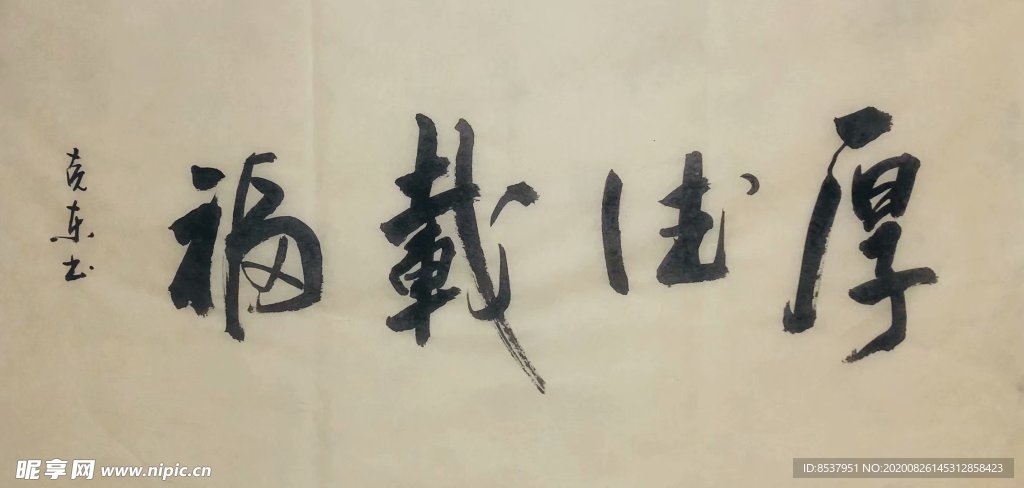 厚德載福
克东书
昵享网 www.nipic.cn
ID:8537951 NO:20200826145312858423